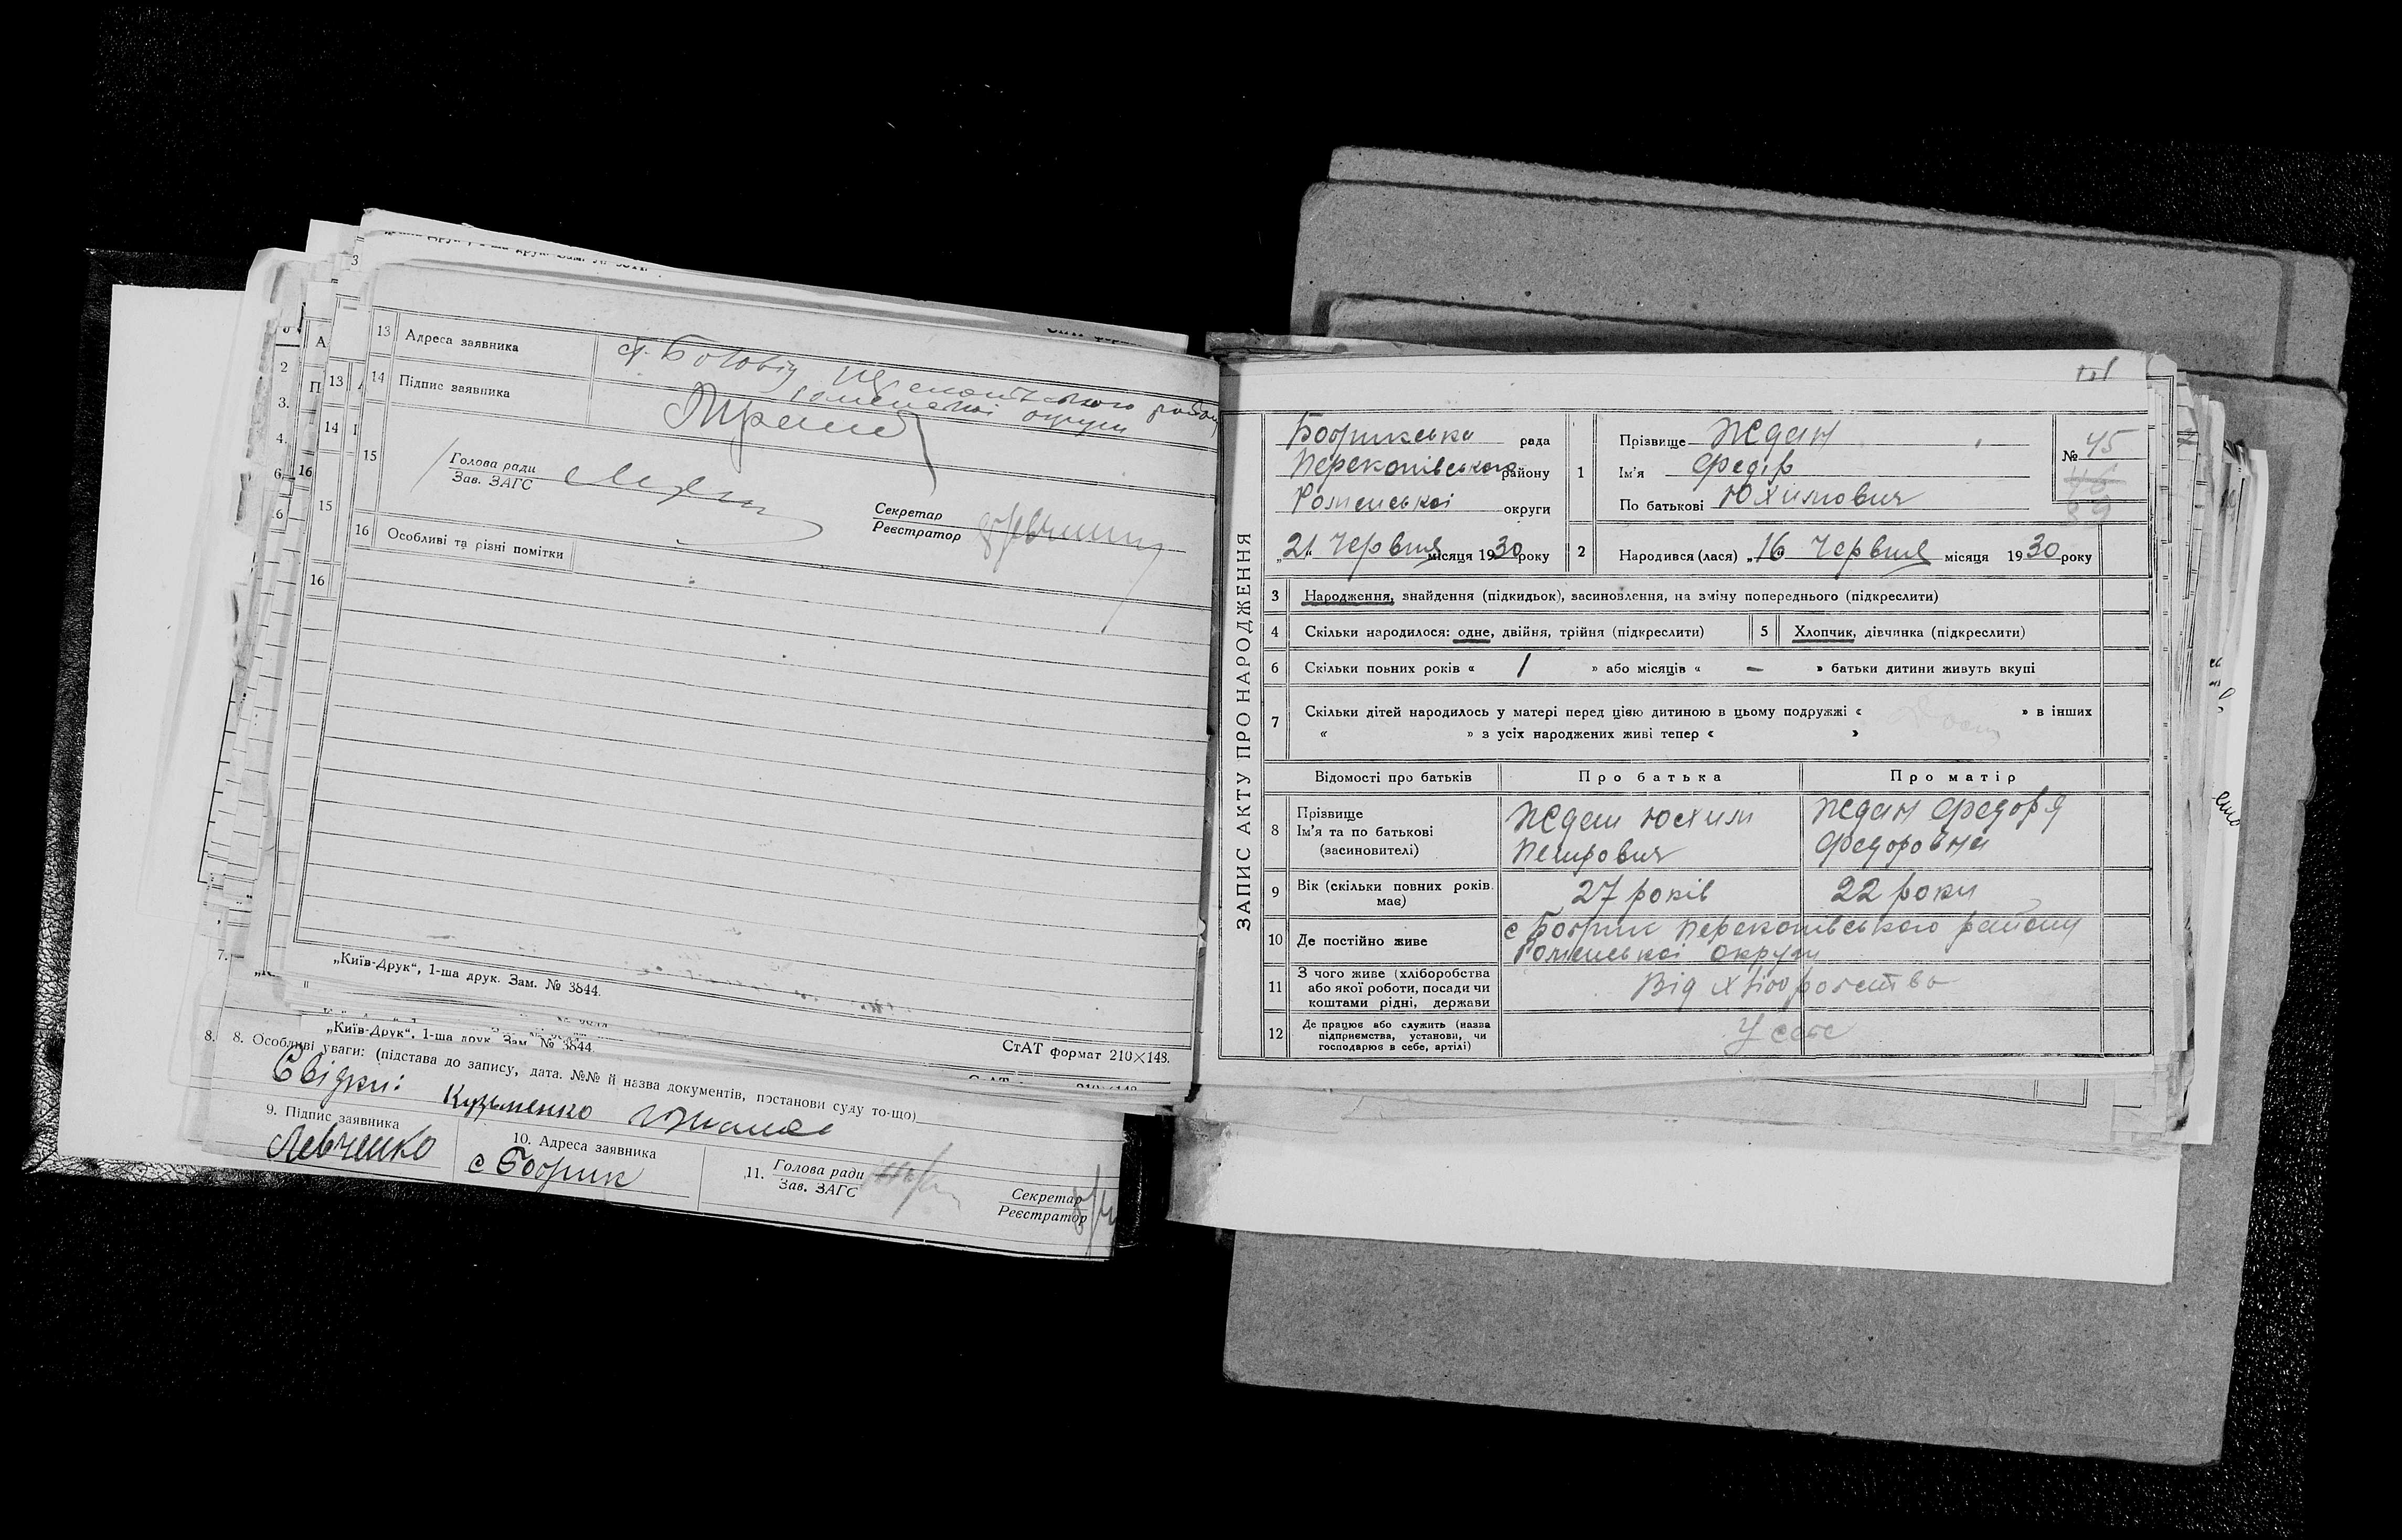 13 Адреса заявника
14 Підпис заявника
15
Голова ради
Зав. ЗАГС
Секретар
Реєстратор
16 Особливі та різні помітки
„Київ-Друк“, 1-ша друк. Зам. № 3844.
СтАТ формат 210×148.
„Київ-Друк“, 1-ша друк. Зам. № 3844.
8. Особливі уваги: (підстава до запису, дата. №№ й назва документів, постанови суду то-що)
Свідки: Кузьменко
9. Підпис заявника
Левченко
10. Адреса заявника
с Бобрик
11. Голова ради
Зав. ЗАГС
Секретар
Реєстратор
ЗАПИС АКТУ ПРО НАРОДЖЕННЯ
Бобрикська рада
Перекопівського району
Роменської округи
„21“ Червня місяця 1930 року
1 Прізвище Ждан
Ім'я Федір
По батькові Юхимович
№ 45
46
39
2 Народився (лася) „16“ Червня місяця 1930 року
3 Народження, знайдення (підкидьок), засиновлення, на зміну попереднього (підкреслити)
4 Скільки народилося: одне, двійня, трійня (підкреслити)
5 Хлопчик, дівчинка (підкреслити)
6 Скільки повних років « 1 » або місяців « – » батьки дитини живуть вкупі
7 Скільки дітей народилось у матері перед цією дитиною в цьому подружжі « » в інших
« » з усіх народжених живі тепер « »
Відомості про батьків Про батька Про матір
8 Прізвище
Ім'я та по батькові
(засиновителі)
Ждан Юхим
Петрович
Ждан Федора
Федоровна
9 Вік (скільки повних років має)
27 років
22 роки
10 Де постійно живе
с Бобрик Перекопівського району
Роменської округи
11 З чого живе (хліборобства
або якої роботи, посади чи
коштами рідні, держави
Від хліборобства
12 Де працює або служить (назва
підприємства, установи, чи
господарює в себе, артілі)
У себе